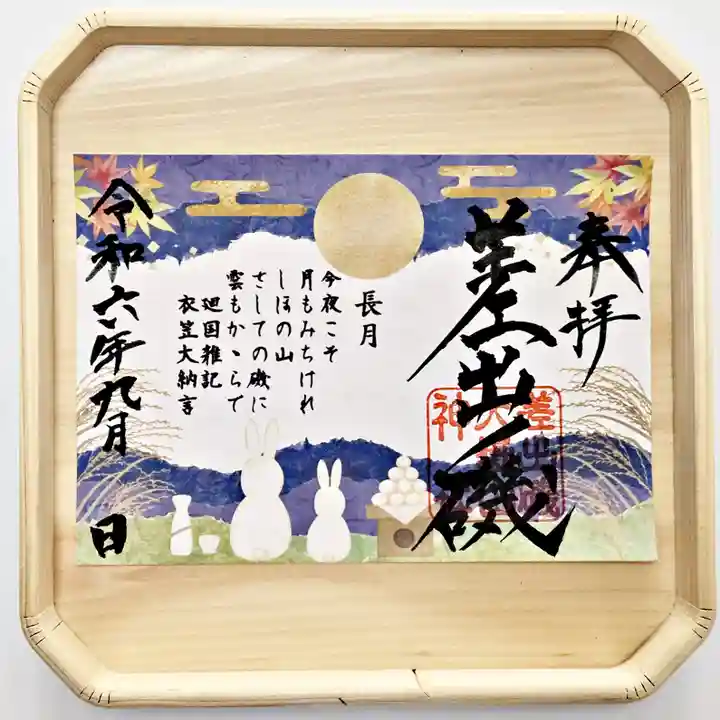 奉拝
差出ノ磯
長月
今夜こそ
月もみちけれ
しほの山
さしでの磯に
雲もかゝらで
廻国雑記
衣笠大納言
令和六年九月　日